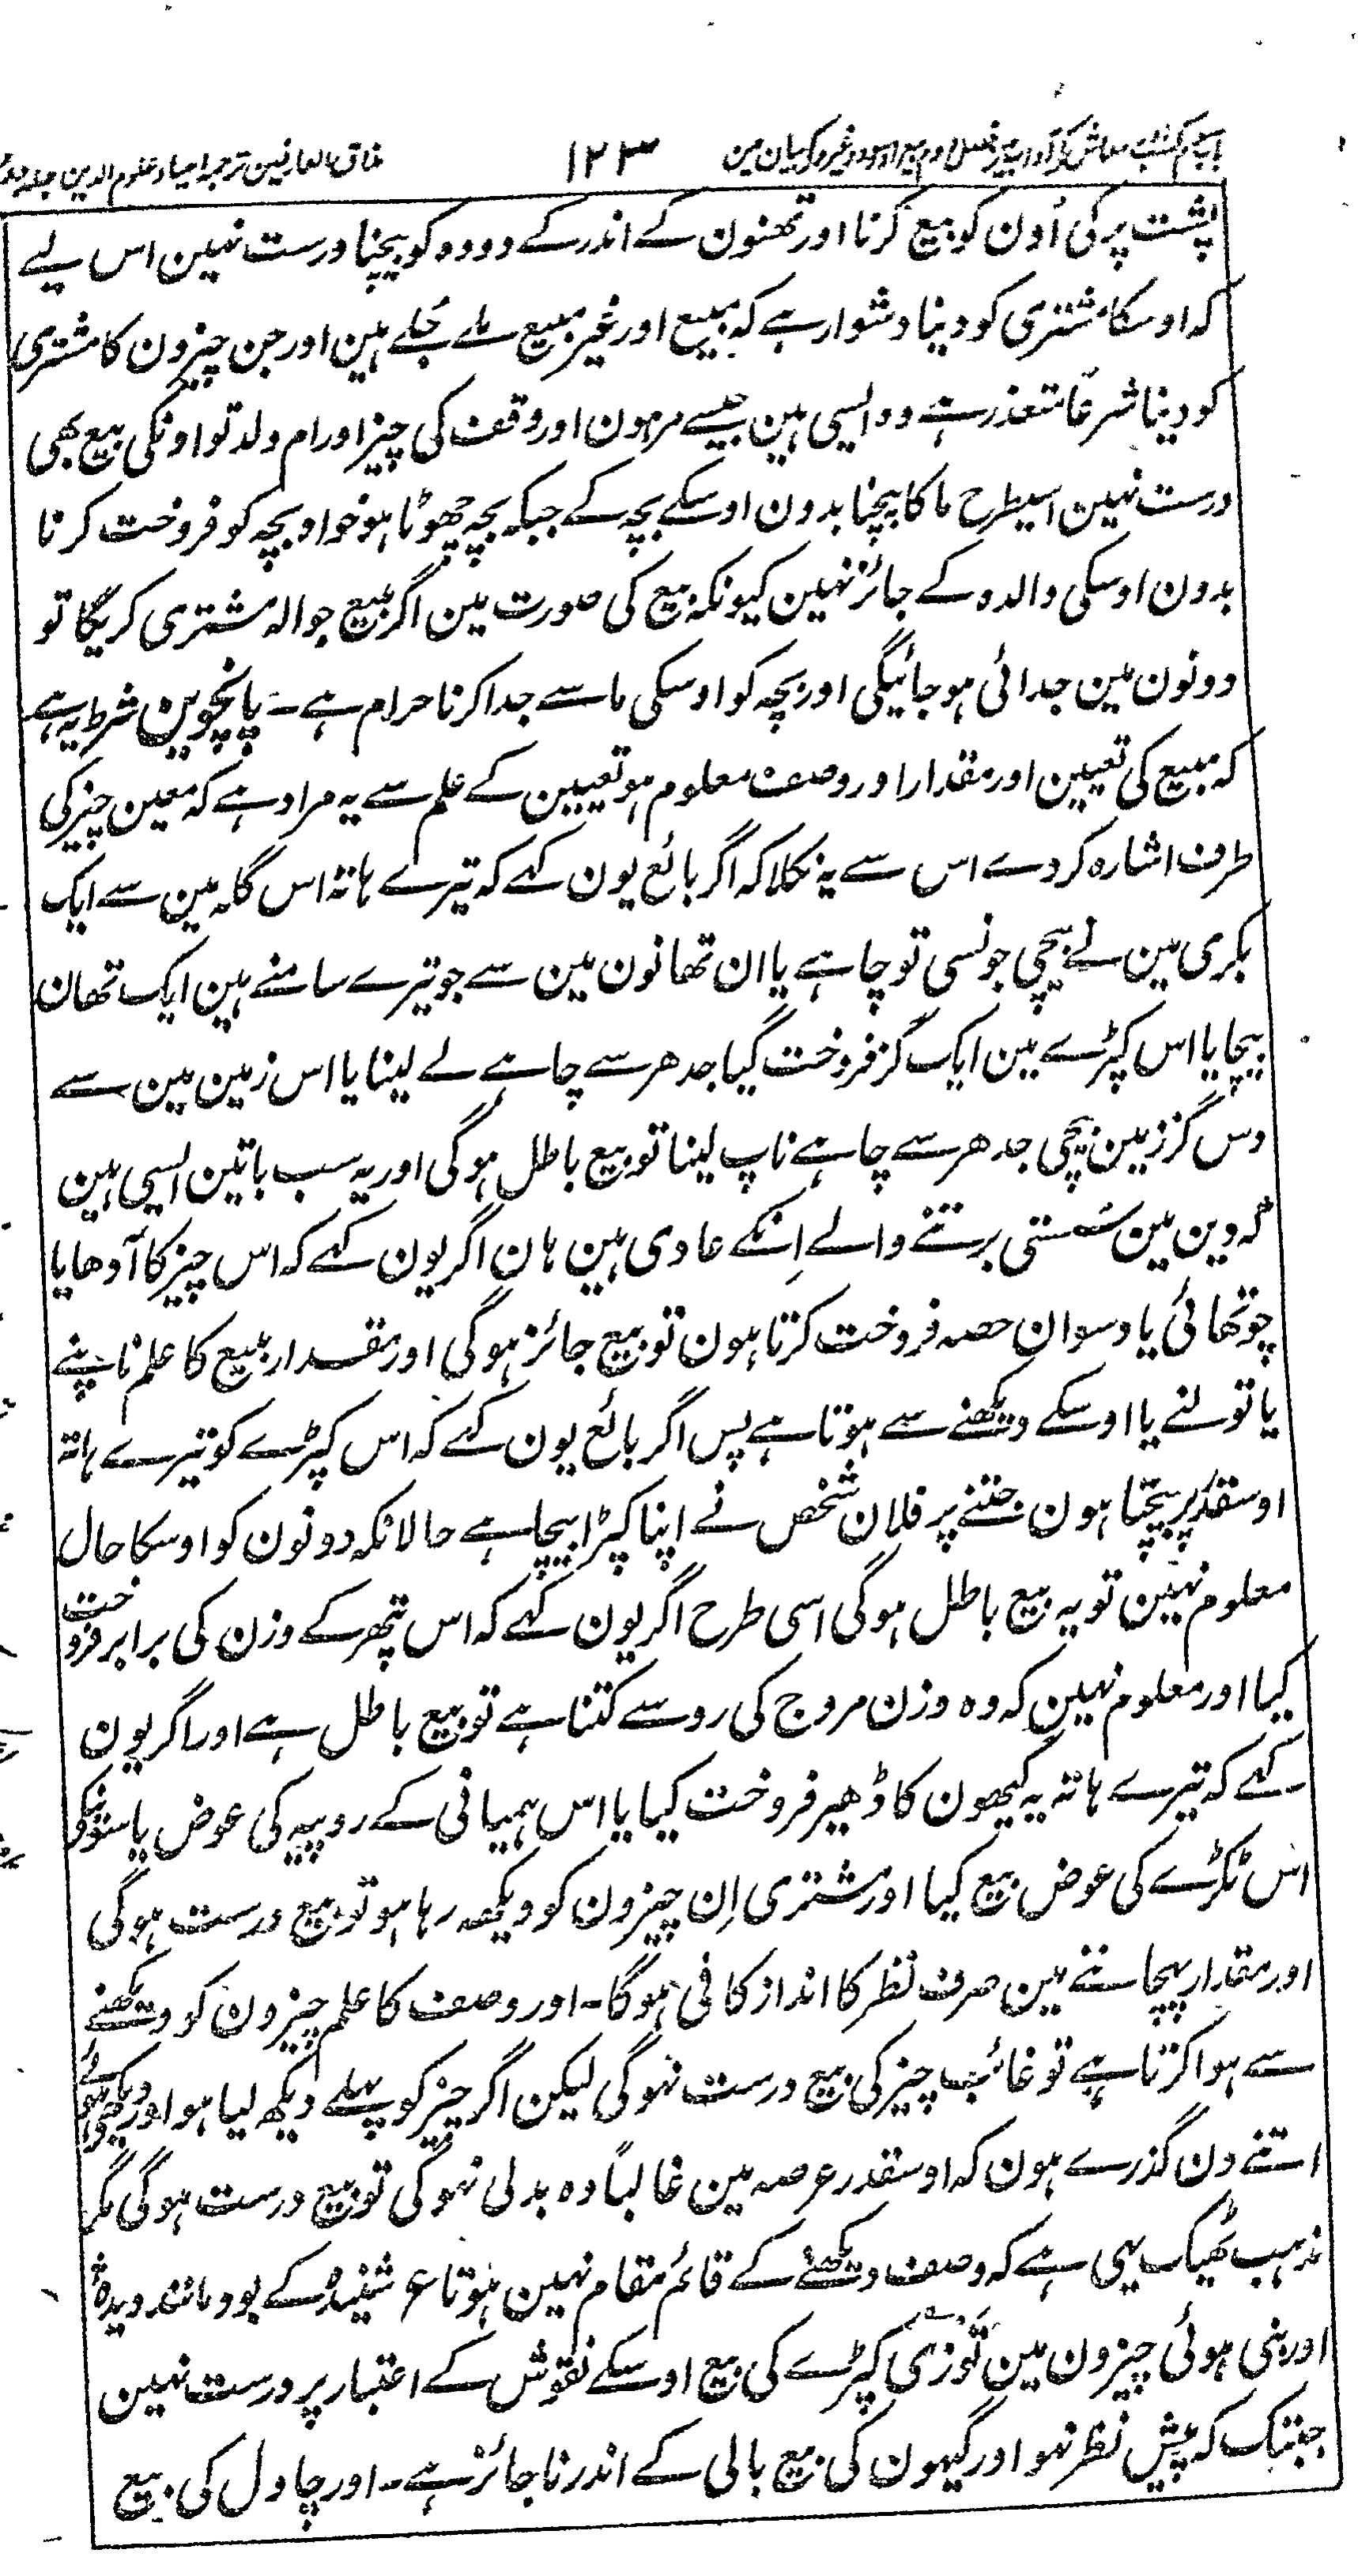 مذاق العارفین ترجمہ احیاء علوم الدین جلد دوم ۱۲۳
پشت پر کی اُون کو بیع کرنا اور تھنون کے اندر کے دودہ کو بیچنا درست نہین اس لیے
کہ اوسکا مشتری کو دینا دشوار ہے کہ مبیع اور غیر مبیع ملے جُلے ہین اور جن چیزون کا مشتری
کو دینا شرعًا متعذر ہے وہ ایسی ہین جیسے مرہون اور وقف کی چیز اور ام ولد تو اونکی بیع بھی
درست نہین اسیطرح ما کا بیچنا بدون اوسکے بچہ کے جبکہ بچہ چھوٹا ہو خواہ بچہ کو فروخت کرنا
بدون اوسکی والدہ کے جائز نہین کیونکہ بیع کی صورت مین اگر مبیع حوالہ مشتری کریگا تو
دونون مین جدائی ہو جائیگی اور بچہ کو اوسکی ما سے جدا کرنا حرام ہے۔ پانچوین شرط یہ ہے
کہ مبیع کی تعیین اور مقدار اور وصف معلوم ہو تعیین کے علم سے یہ مراد ہے کہ معین چیز کی
طرف اشارہ کر دے اس سے یہ نکلا کہ اگر بائع یون کہے کہ تیرے ہاتہ اس گلہ مین سے ایک
بکری مین نے بیچی جونسی تو چاہے یا ان تھانون مین سے جو تیرے سامنے ہین ایک تھان
بیچا یا اس کپڑے مین ایک گز فروخت کیا جدھر سے چاہے لے لینا یا اس زمین مین سے
دس گز زمین بیچی جدھر سے چاہے ناپ لینا تو بیع باطل ہوگی اور یہ سب باتین ایسی ہین
کہ دین مین سُستی برتنے والے اِنکے عادی ہین ہان اگر یون کہے کہ اس چیز کا آدھا یا
چوتھائی یا دسوان حصہ فروخت کرتا ہون تو بیع جائز ہوگی اور مقدار مبیع کا علم ناپنے
یا تولنے یا اوسکے دیکھنے سے ہوتا ہے پس اگر بائع یون کہے کہ اس کپڑے کو تیرے ہاتہ
اوسقدر پر بیچتا ہون جتنے پر فلان شخص نے اپنا کپڑا بیچا ہے حالانکہ دونون کو اوسکا حال
معلوم نہین تو یہ بیع باطل ہوگی اسی طرح اگر یون کہے کہ اس پتھر کے وزن کی برابر فروخت
کیا اور معلوم نہین کہ وہ وزن مروج کی رو سے کتنا ہے تو بیع باطل ہے اور اگر یون
کہے کہ تیرے ہاتہ یہ گیہون کا ڈھیر فروخت کیا یا اس ہمیانی کے روپیہ کی عوض یا سونیکے
اس ٹکڑے کی عوض بیع کیا اور مشتری اِن چیزون کو دیکھ رہا ہو تو بیع درست ہوگی
اور مقدار پہچاننے مین صرف نظر کا انداز کافی ہوگا۔ اور وصف کا علم چیزون کو دیکھنے
سے ہوا کرتا ہے تو غائب چیز کی بیع درست نہوگی لیکن اگر چیز کو پہلے دیکھ لیا ہو اور دیکھے ہوئے
اتنے دن گذرے ہون کہ اوسقدر عرصہ مین غالباً وہ بدلی نہوگی تو بیع درست ہوگی مگر
مذہب ٹھیک یہی ہے کہ وصف دیکھنے کے قائم مقام نہین ہوتا ع شنیدہ کے بود مانند دیدہ
اور بنی ہوئی چیزون مین تَوَّزی کپڑے کی بیع اوسکے نقوش کے اعتبار پر درست نہین
جبتک کہ پیش نظر نہو اور گیہون کی بیع بالی کے اندر ناجائز ہے۔ اور چاول کی بیع